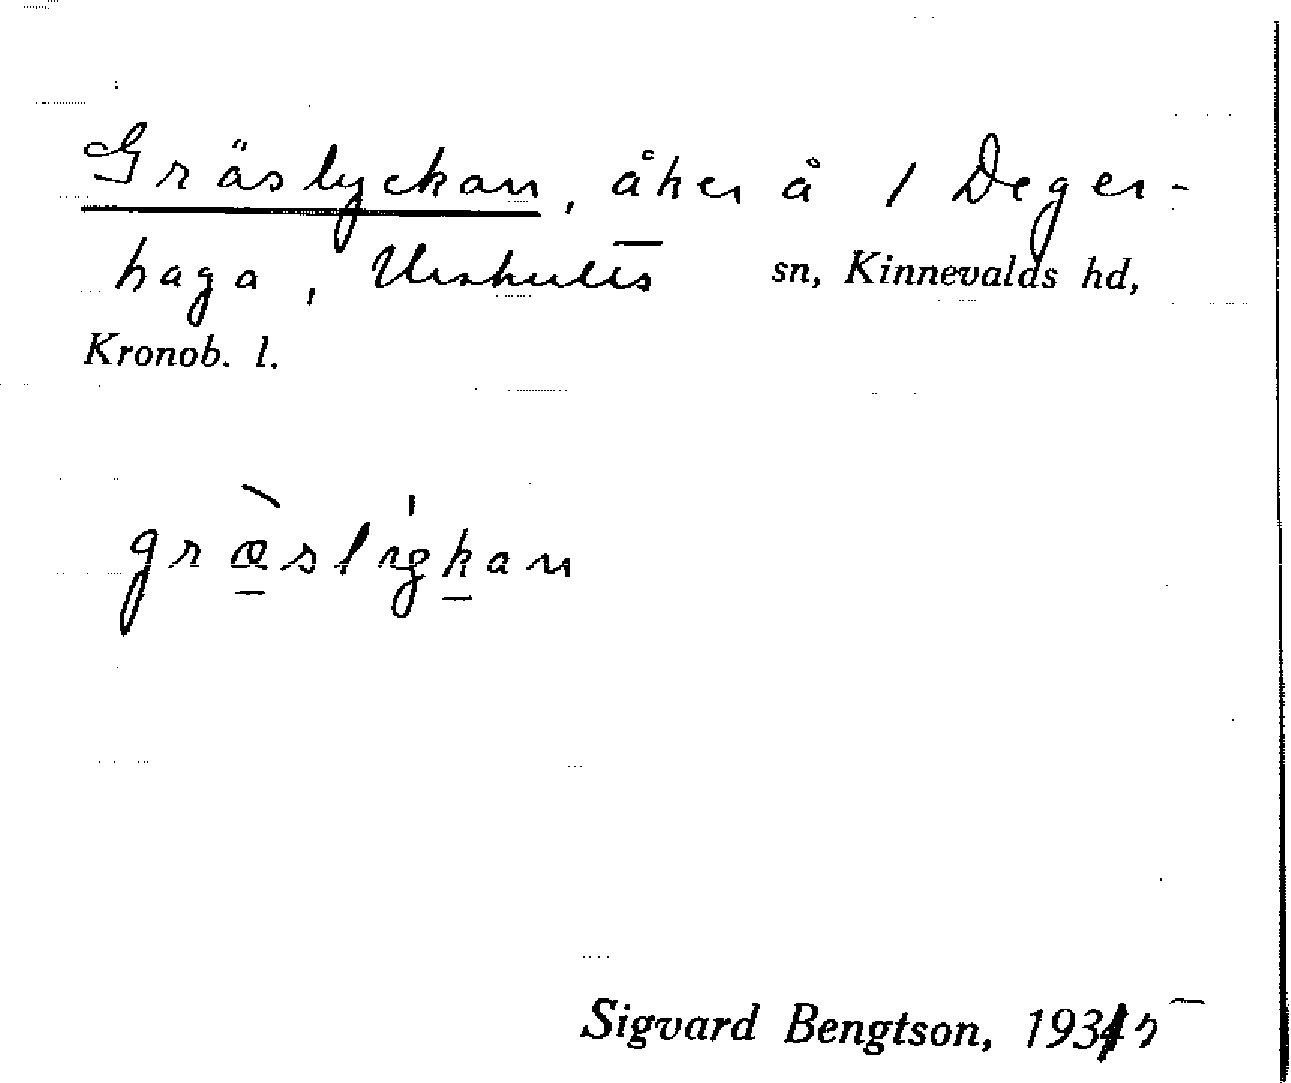 Gräslyckan, åker å 1 Deger-
haga, Urshults sn, Kinnevalds hd,
Kronob. l.
græsligkan
Sigvard Bengtson, 1935